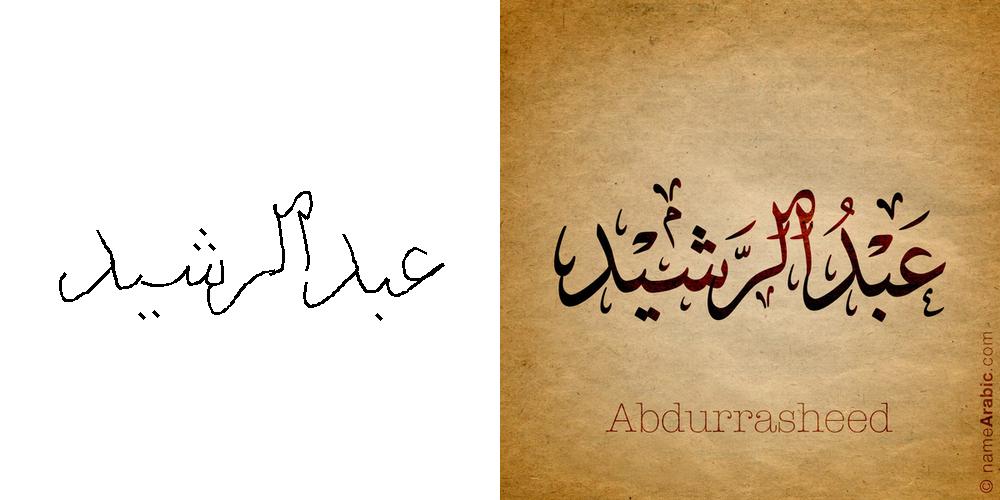 عبد الرشيد
عَبْدُ الرَّشيْد
Abdurrasheed
© nameArabic.com